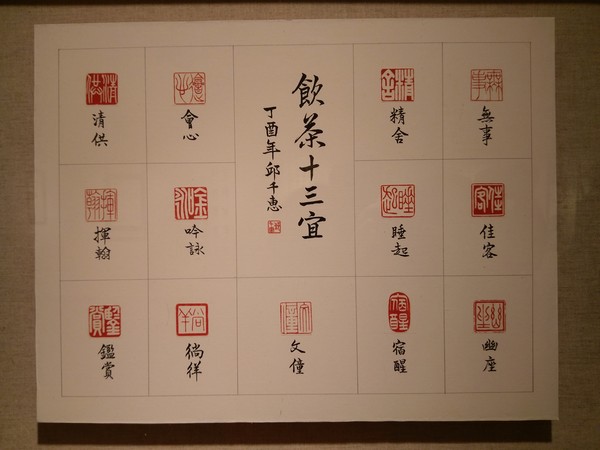 飲茶十三宜
丁酉年邱千惠
無事
佳客
幽座
精舍
睡起
宿醒
文僮
會心
吟詠
徜徉
清供
揮翰
鑑賞